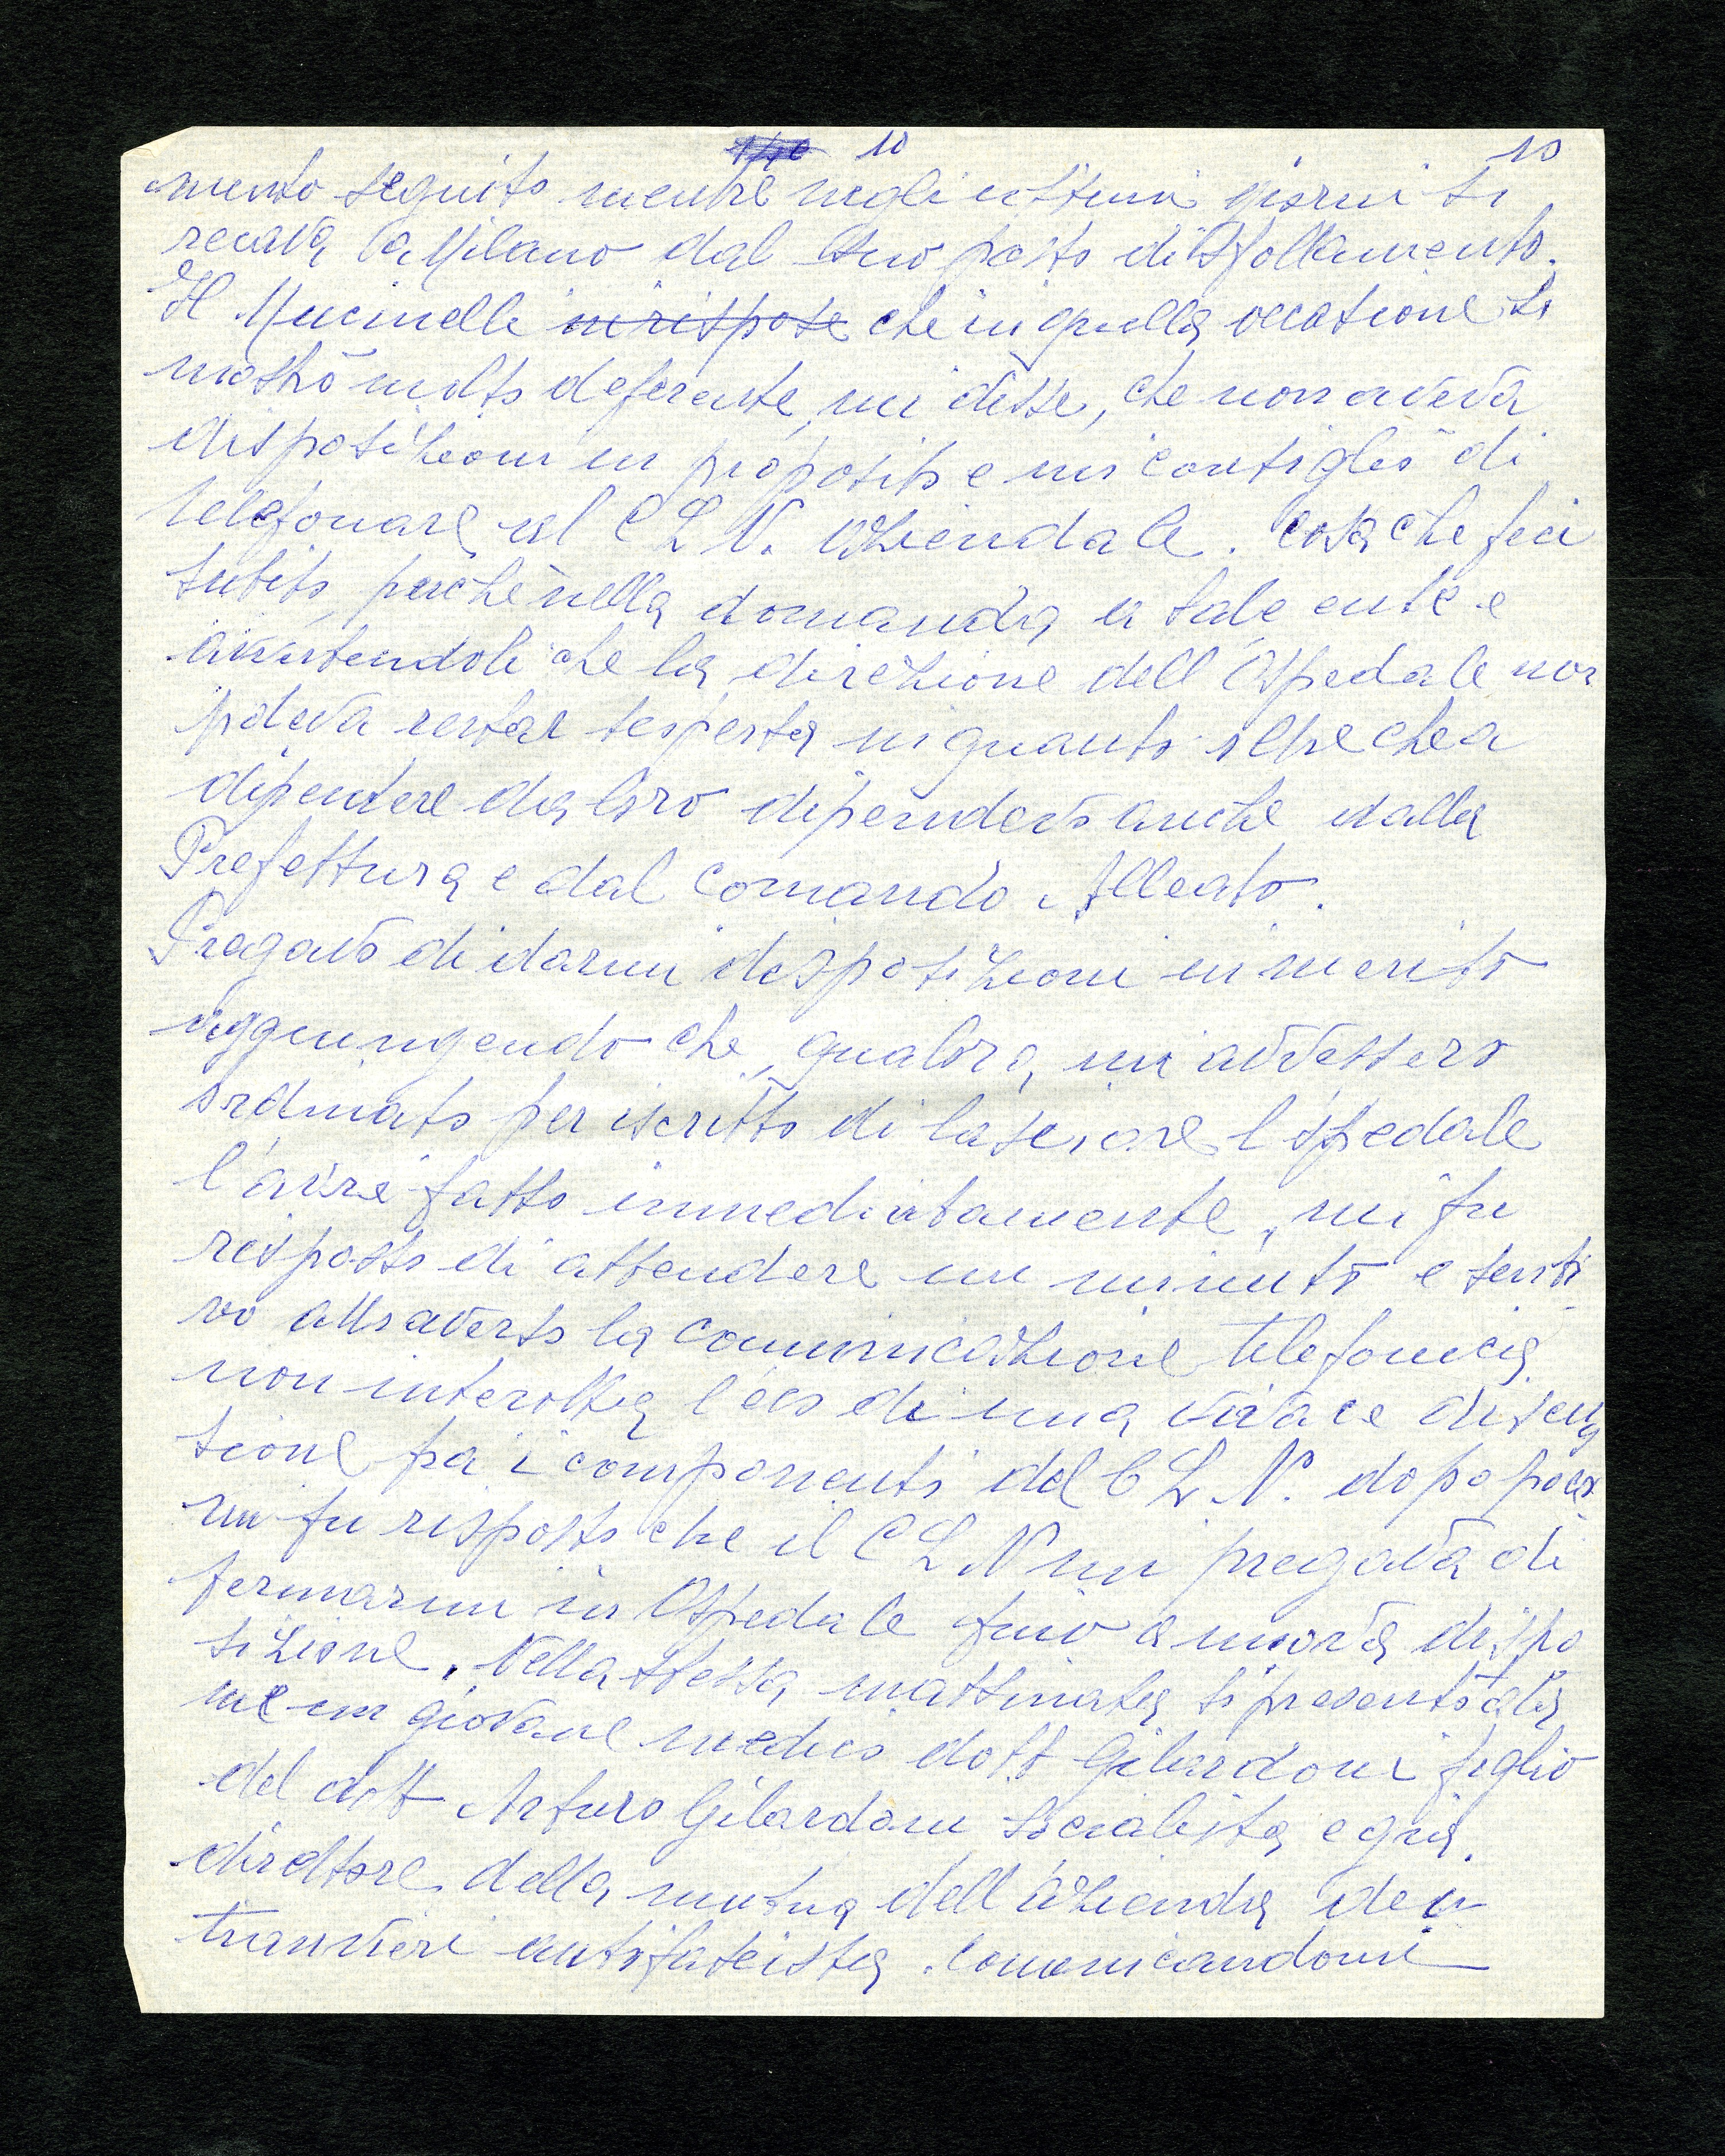 10 10
mento seguito mentre negli ultimi giorni si
recava a Milano dal suo posto di sfollamento.
Il Mucinelli mi rispose che in quella occasione si
mostrò molto deferente, mi disse, che non aveva
disposizioni in proposito e mi consigliò di
telefonare al C L N. aziendale. cosa che feci
subito, perchè nella domanda a tale ente e
avvertendoli che la direzione dell'Ospedale non
poteva restar in quanto oltre che a
dipendere da loro dipendevo anche dalla
Prefettura e dal comando Alleato.
Pregavo di darmi disposizioni in merito
aggiungendo che, qualora, mi avvessero
ordinato per iscritto di lasciare l'ospedale
l'avrei fatto immediatamente, mi fu
risposto di attendere un minuto e senti
vo attraverso la comunicazione telefonica
non interotta l'eco di una vivace discus
sione fra i componenti del C L N. dopo poco
mi fu risposto che il C L N mi pregava di
fermarmi in Ospedale fino a nuova dispo
sizione. Nella stessa mattinata si presentò da
me un giovane medico dott Gilardoni figlio
del dott Arturo Gilardoni socialista e già
direttore della mutua dell'azienda dei
tranvieri antifascista. Comunicandomi